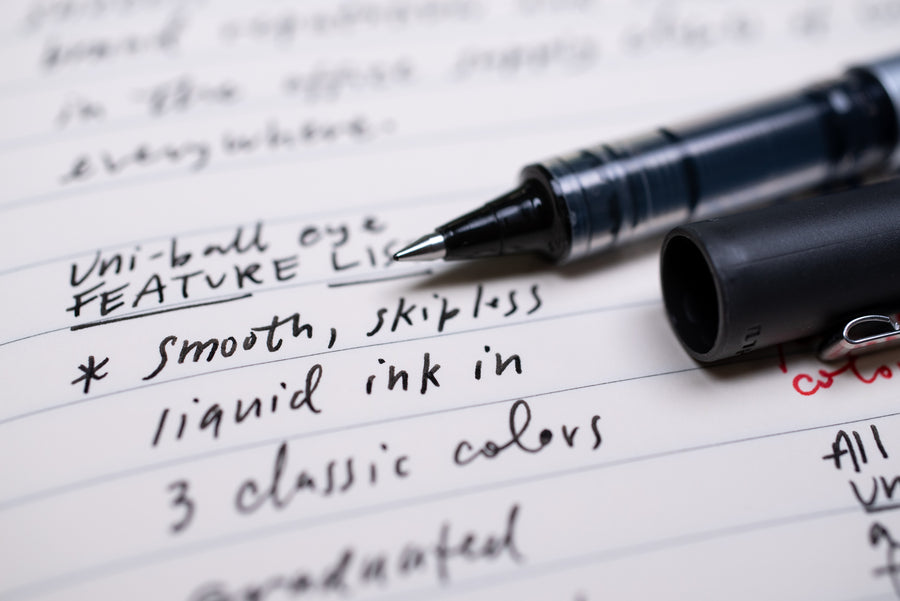 brand
in the office supply
everywhere.
Uni-ball eye
FEATURE LIS
* smooth, skipless
liquid ink in
3 classic colors
graduated
colo
All
un